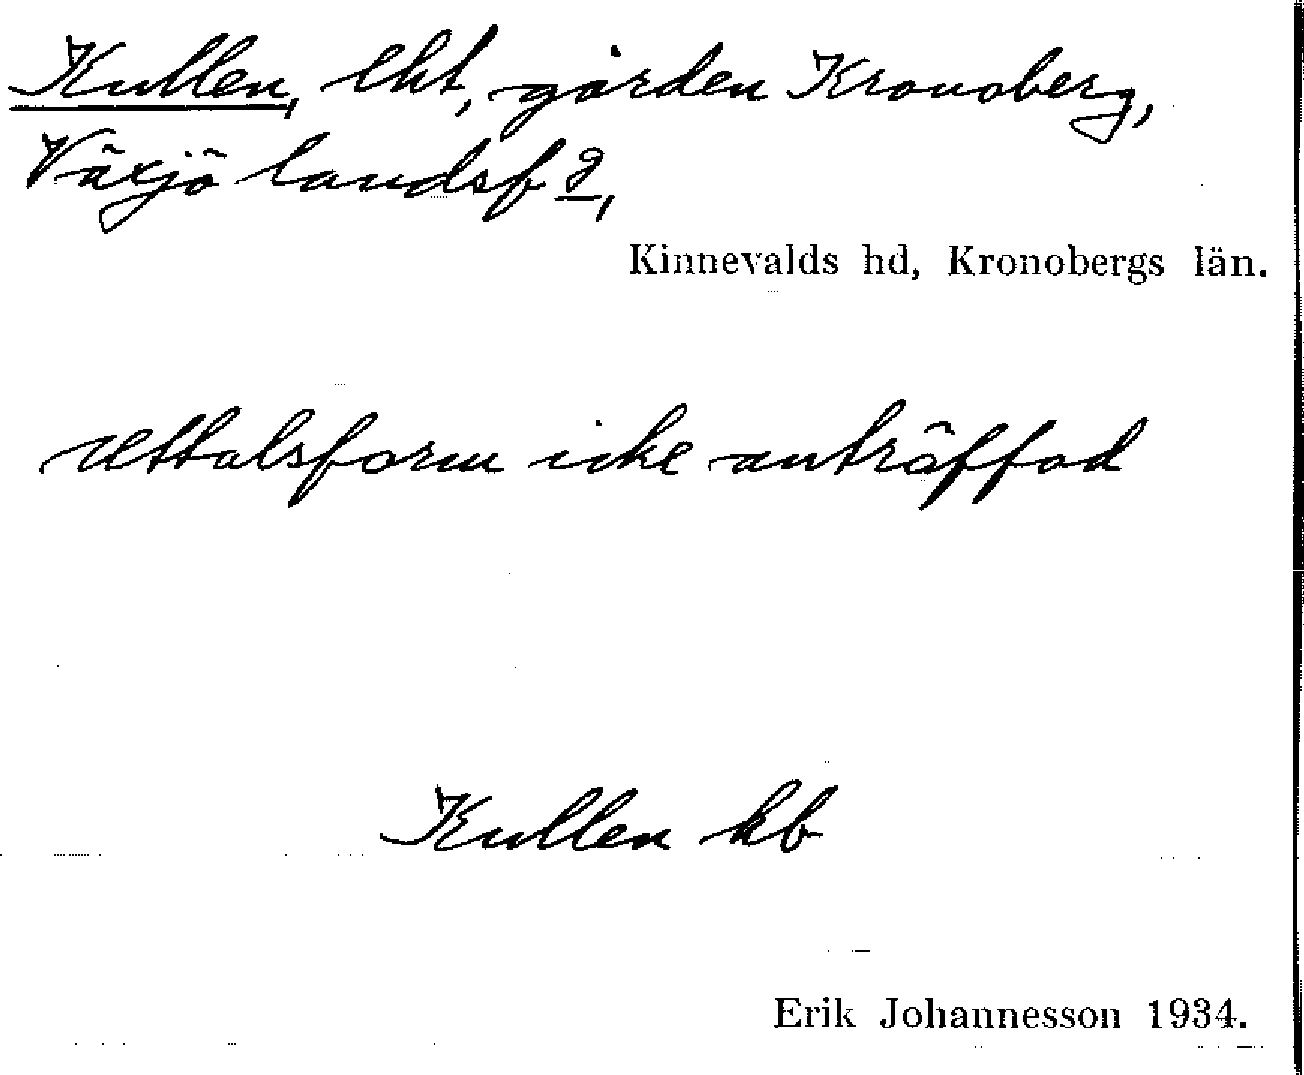 Kullen, lht, gården Kronoberg,
Växjö landsf d,
Kinnevalds hd, Kronobergs län.
Uttalsform icke anträffad
Kullen kb
Erik Johannesson 1934.